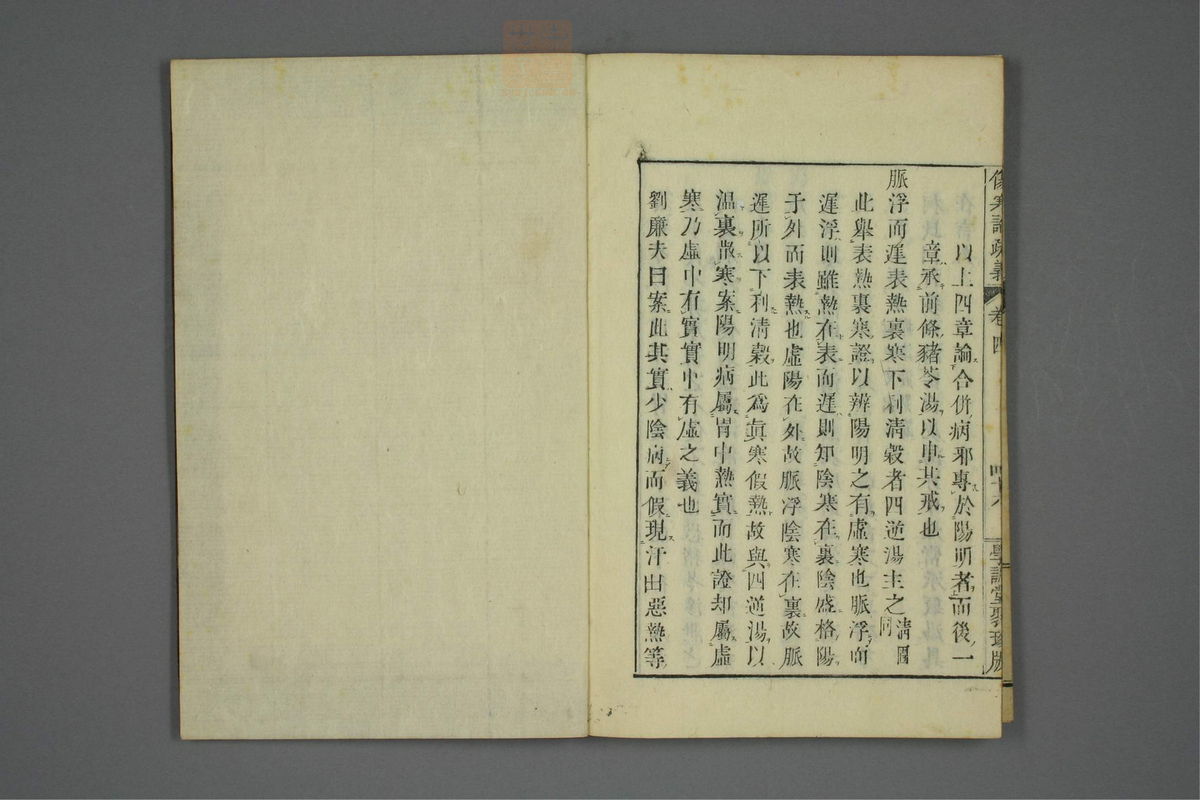 傷寒論疏義 卷四 四十八 學訓堂聚珍版
以上四章論合併病邪專於陽明者而後一
章承前條豬苓湯以申其戒也
脈浮而遲表熱裏寒下利清穀者四逆湯主之 清圊同
此舉表熱裏寒證以辨陽明之有虛寒也脈浮而
遲浮則雖熱在表而遲則知陰寒在裏陰盛格陽
于外而表熱也虛陽在外故脈浮陰寒在裏故脈
遲所以下利清穀此爲眞寒假熱故與四逆湯以
溫裏散寒案陽明病屬胃中熱實而此證却屬虛
寒乃虛中有實實中有虛之義也
劉廉夫曰案此其實少陰病而假現汗出惡熱等